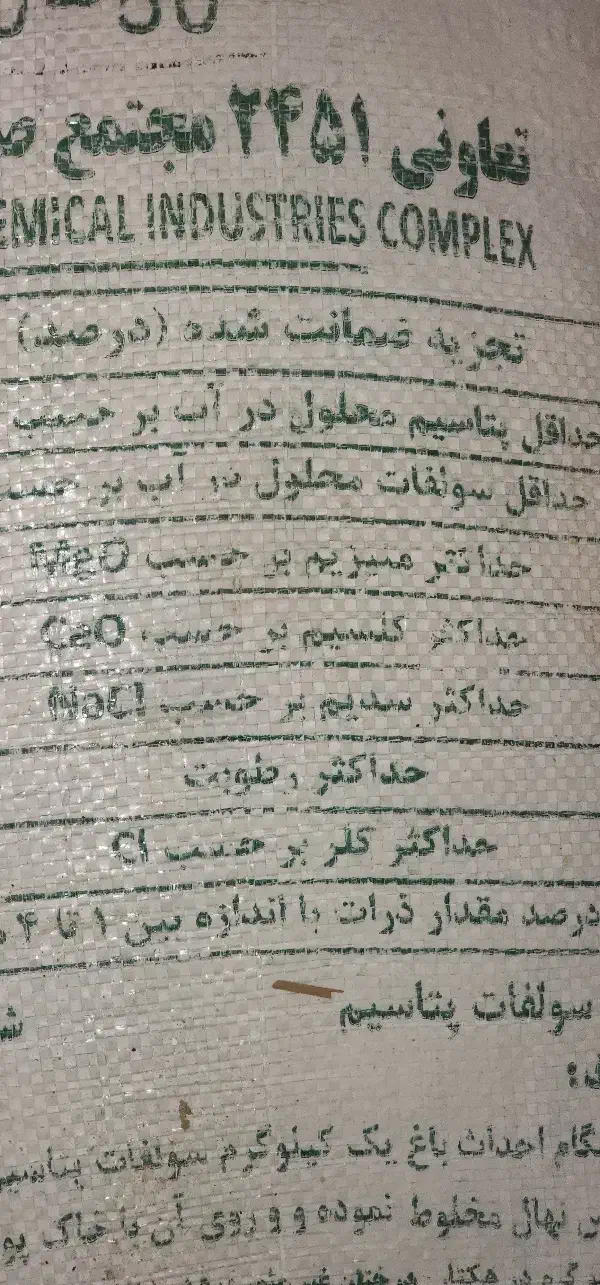 50
تعاونی ۲۴۵۱ مجتمع
EMICAL INDUSTRIES COMPLEX
تجزیه ضمانت شده (درصد)
حداقل پتاسیم محلول در آب بر حسب
حداقل سولفات محلول در آب بر حسب
حداکثر منیزیم بر حسب MgO
حداکثر کلسیم بر حسب CaO
حداکثر سدیم بر حسب NaCl
حداکثر رطوبت
حداکثر کلر بر حسب Cl
درصد مقدار ذرات با اندازه بین ۱ تا ۴
سولفات پتاسیم
گام احداث باغ یک کیلوگرم سولفات پتاسیم
نهال مخلوط نموده و روی آن با خاک پو